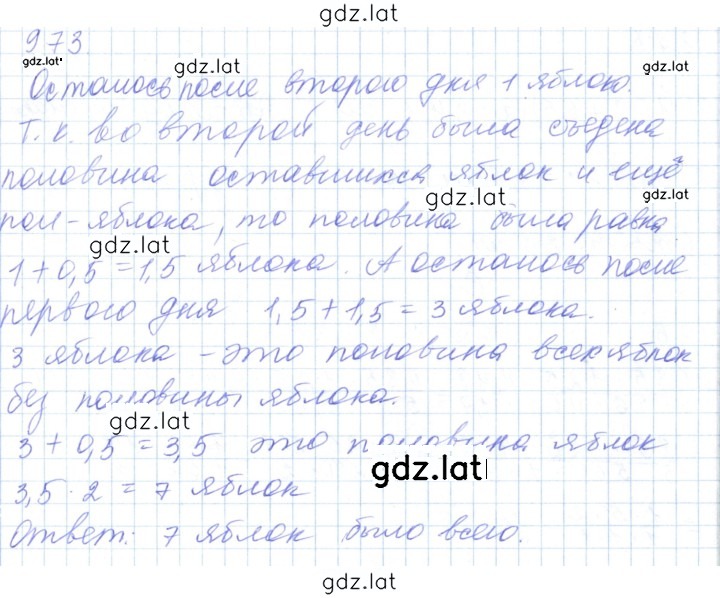 gdz.lat
973
gdz.lat gdz.lat gdz.lat
Осталось после второго дня 1 яблоко.
Т. к. во второй день была съедена
половина оставшихся яблок и ещё
gdz.lat gdz.lat
пол-яблока, то половина была равна
gdz.lat
1 + 0,5 = 1,5 яблока. А осталось после
первого дня 1,5 + 1,5 = 3 яблока.
3 яблока - это половина всех яблок
без половины яблока.
gdz.lat
3 + 0,5 = 3,5 это половина яблок
gdz.lat
3,5 · 2 = 7 яблок
Ответ: 7 яблок было всего.
gdz.lat